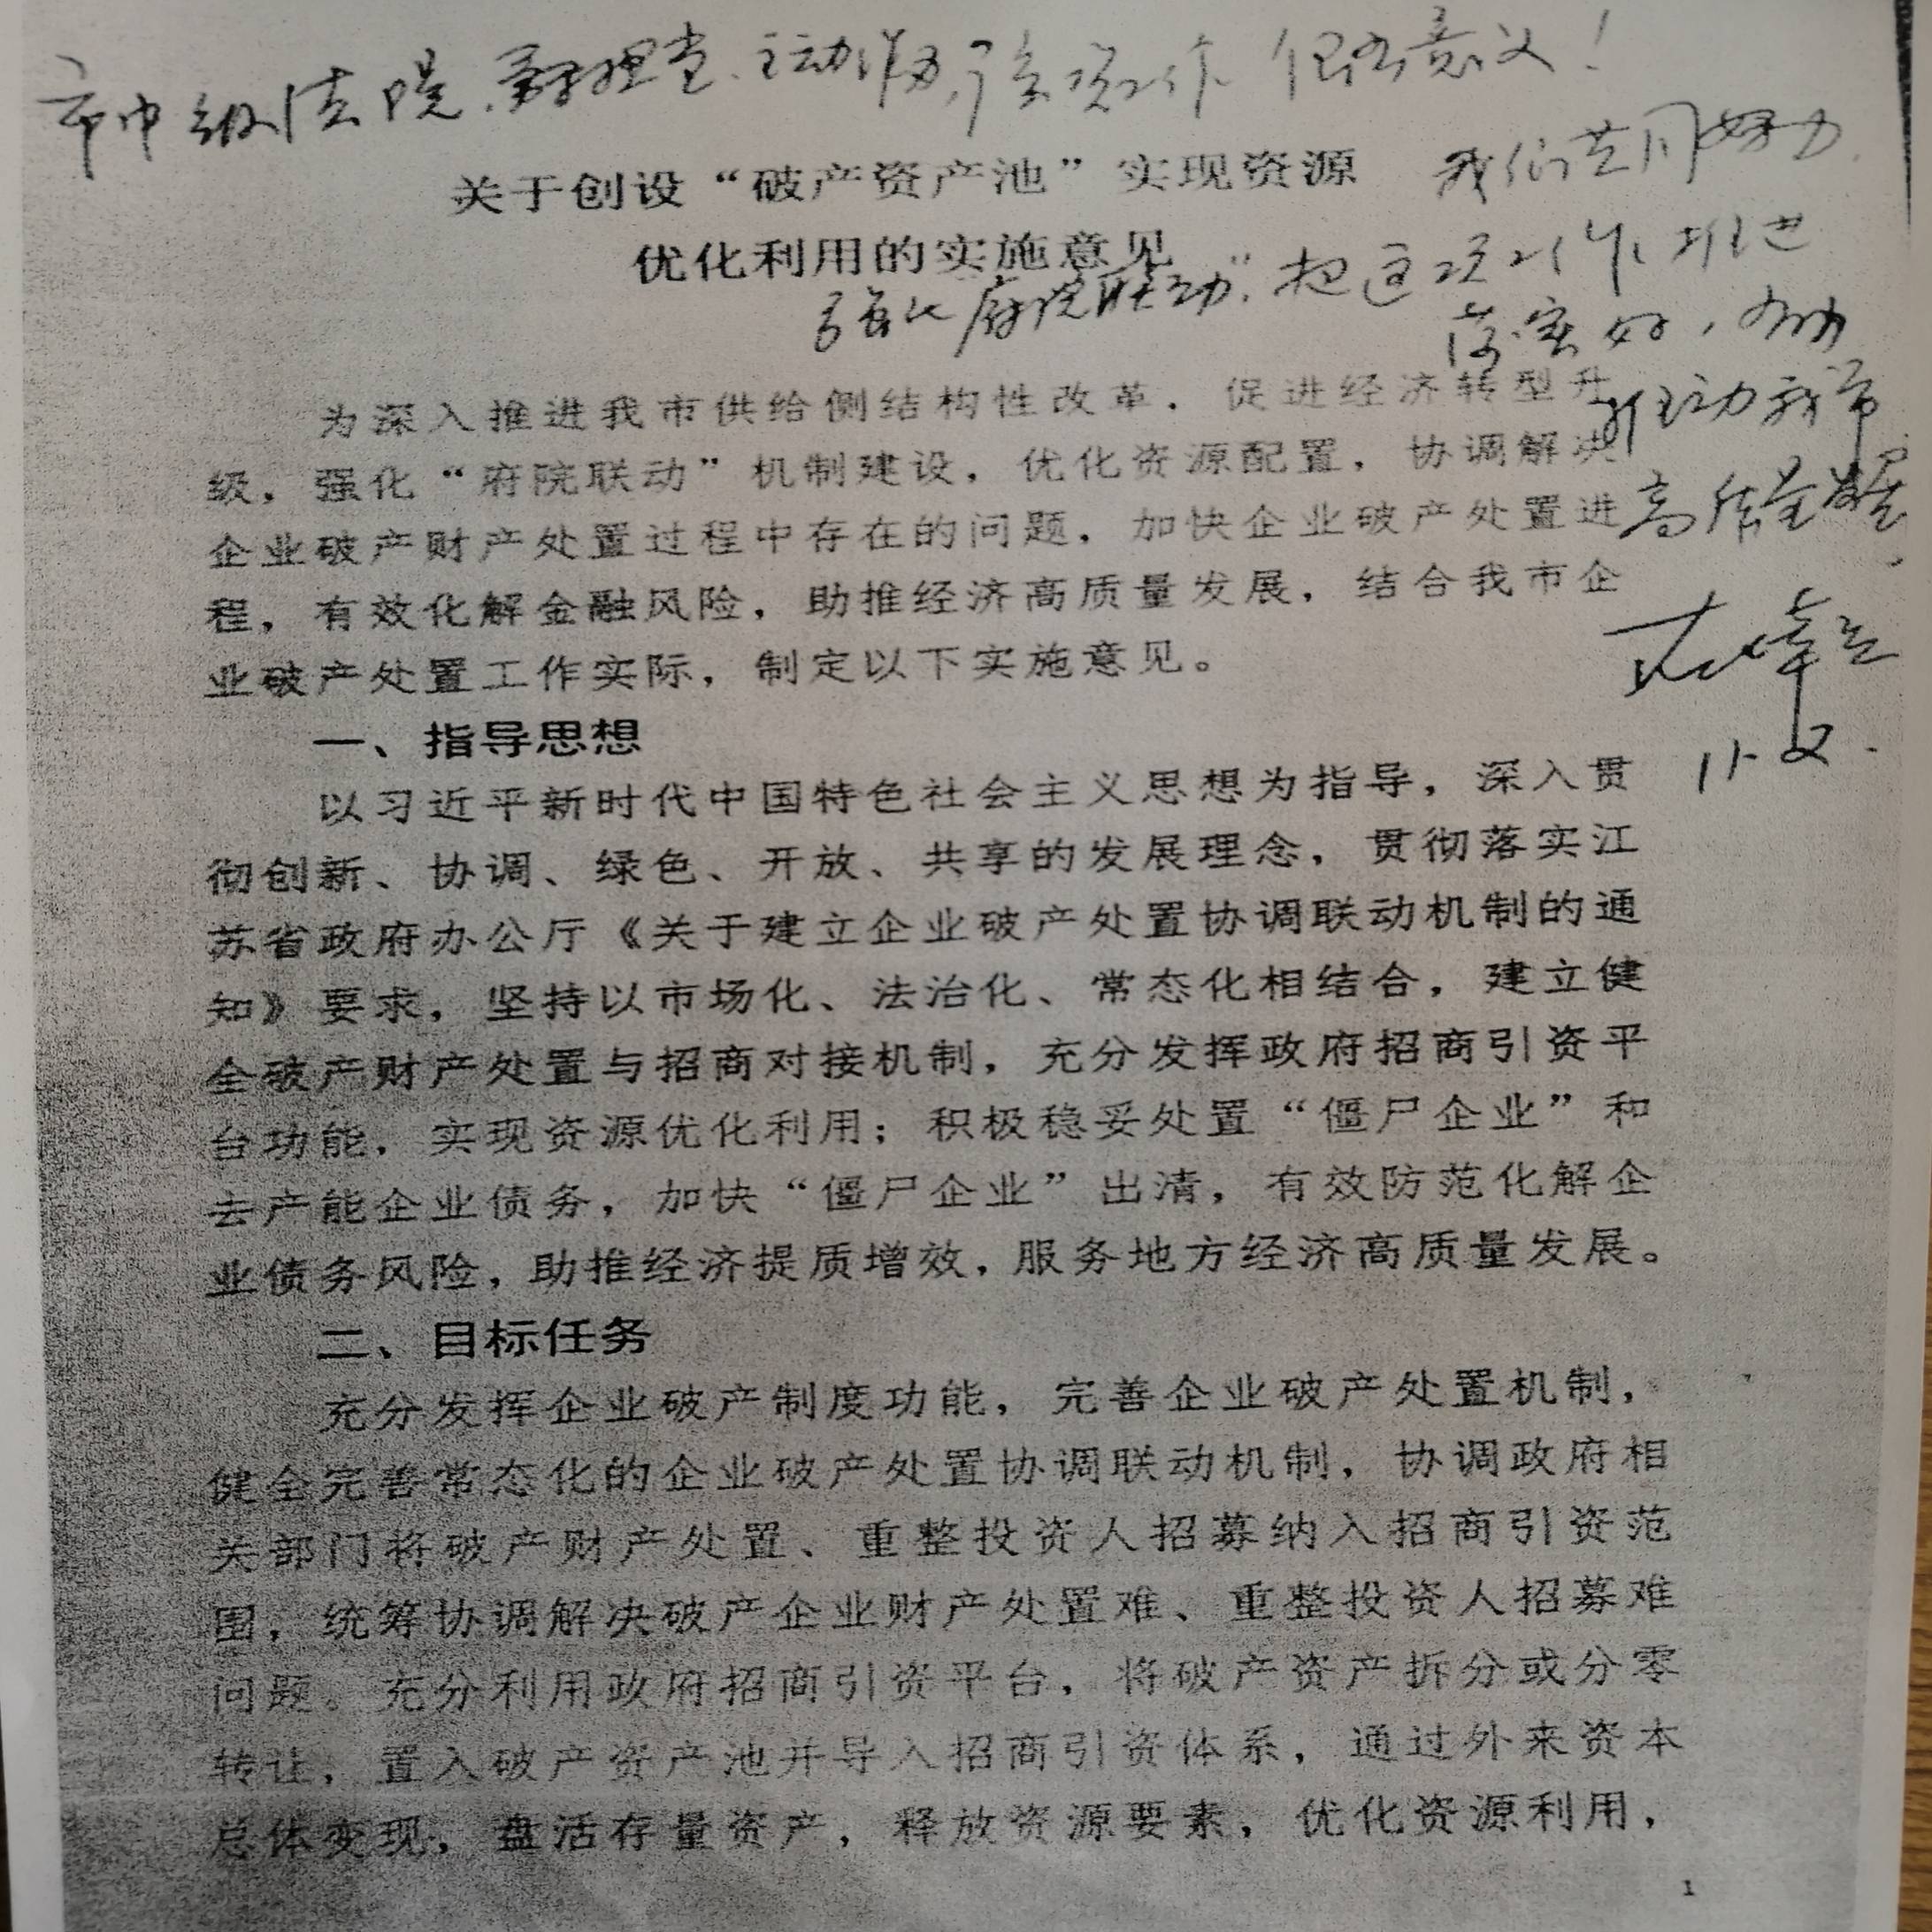 市中级法院、主动作为,该项工作很有意义!
关于创设“破产资产池”实现资源
我们共同努力
优化利用的实施意见
强化“府院联动”,把这项工作推进
落实好,
推动我市
高质量发展
为深入推进我市供给侧结构性改革,促进经济转型升
级,强化“府院联动”机制建设,优化资源配置,协调解决
企业破产财产处置过程中存在的问题,加快企业破产处置进
程,有效化解金融风险,助推经济高质量发展,结合我市企
业破产处置工作实际,制定以下实施意见。
一、指导思想
以习近平新时代中国特色社会主义思想为指导,深入贯
彻创新、协调、绿色、开放、共享的发展理念,贯彻落实江
苏省政府办公厅《关于建立企业破产处置协调联动机制的通
知》要求,坚持以市场化、法治化、常态化相结合,建立健
全破产财产处置与招商对接机制,充分发挥政府招商引资平
台功能,实现资源优化利用;积极稳妥处置“僵尸企业”和
去产能企业债务,加快“僵尸企业”出清,有效防范化解企
业债务风险,助推经济提质增效,服务地方经济高质量发展。
二、目标任务
充分发挥企业破产制度功能,完善企业破产处置机制,
健全完善常态化的企业破产处置协调联动机制,协调政府相
关部门将破产财产处置、重整投资人招募纳入招商引资范
围,统筹协调解决破产企业财产处置难、重整投资人招募难
问题。充分利用政府招商引资平台,将破产资产拆分或分零
转让,置入破产资产池并导入招商引资体系,通过外来资本
总体变现,盘活存量资产,释放资源要素,优化资源利用,
1